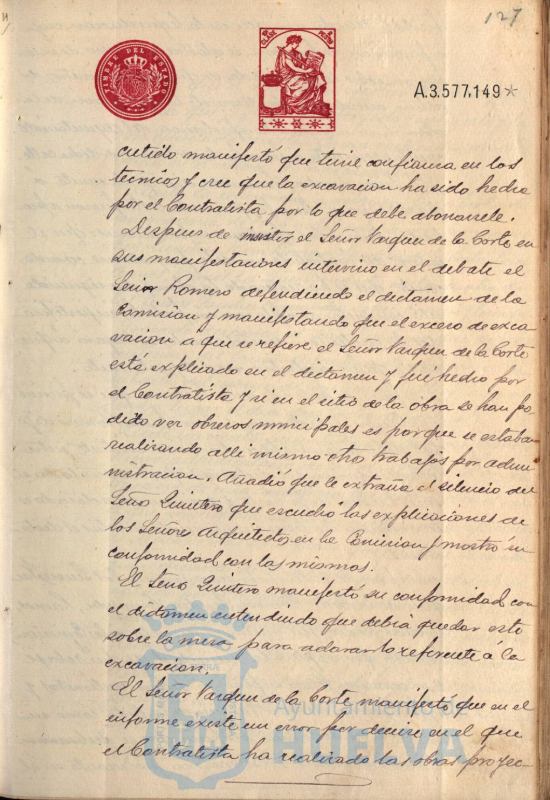 127
TIMBRE DEL ESTADO
A.3.577.149*
cutido manifestó que tiene confianza en los
tecnicos y cree que la excavacion ha sido hecha
por el Contratista por lo que debe abonarsele.
Despues de insistir el Señor Vazquez de la Corte en
sus manifestaciones intervino en el debate el
Señor Romero defendiendo el dictamen de la
Comision y manifestando que el exceso de exca
vacion a que se refiere el Señor Vazquez de la Corte
está explicado en el dictamen y fué hecho por
el Contratista y si en el sitio de la obra se han po
dido ver obreros municipales es porque se estaban
realizando alli mismo otros trabajos por admi
nistracion. Añadió que le extraña el silencio del
Señor Quintero que escuchó las explicaciones de
los Señores Arquitectos en la Comision y mostró su
conformidad con las mismas.
El Señor Quintero manifestó su conformidad con
el dictamen entendiendo que debia quedar esto
sobre la mesa para aclarar lo referente á la
excavacion.
El Señor Vazquez de la Corte manifestó que en el
informe existe un error por decirse en el que
el Contratista ha realizado las obras proyec-
Ayuntamiento de
HUELVA